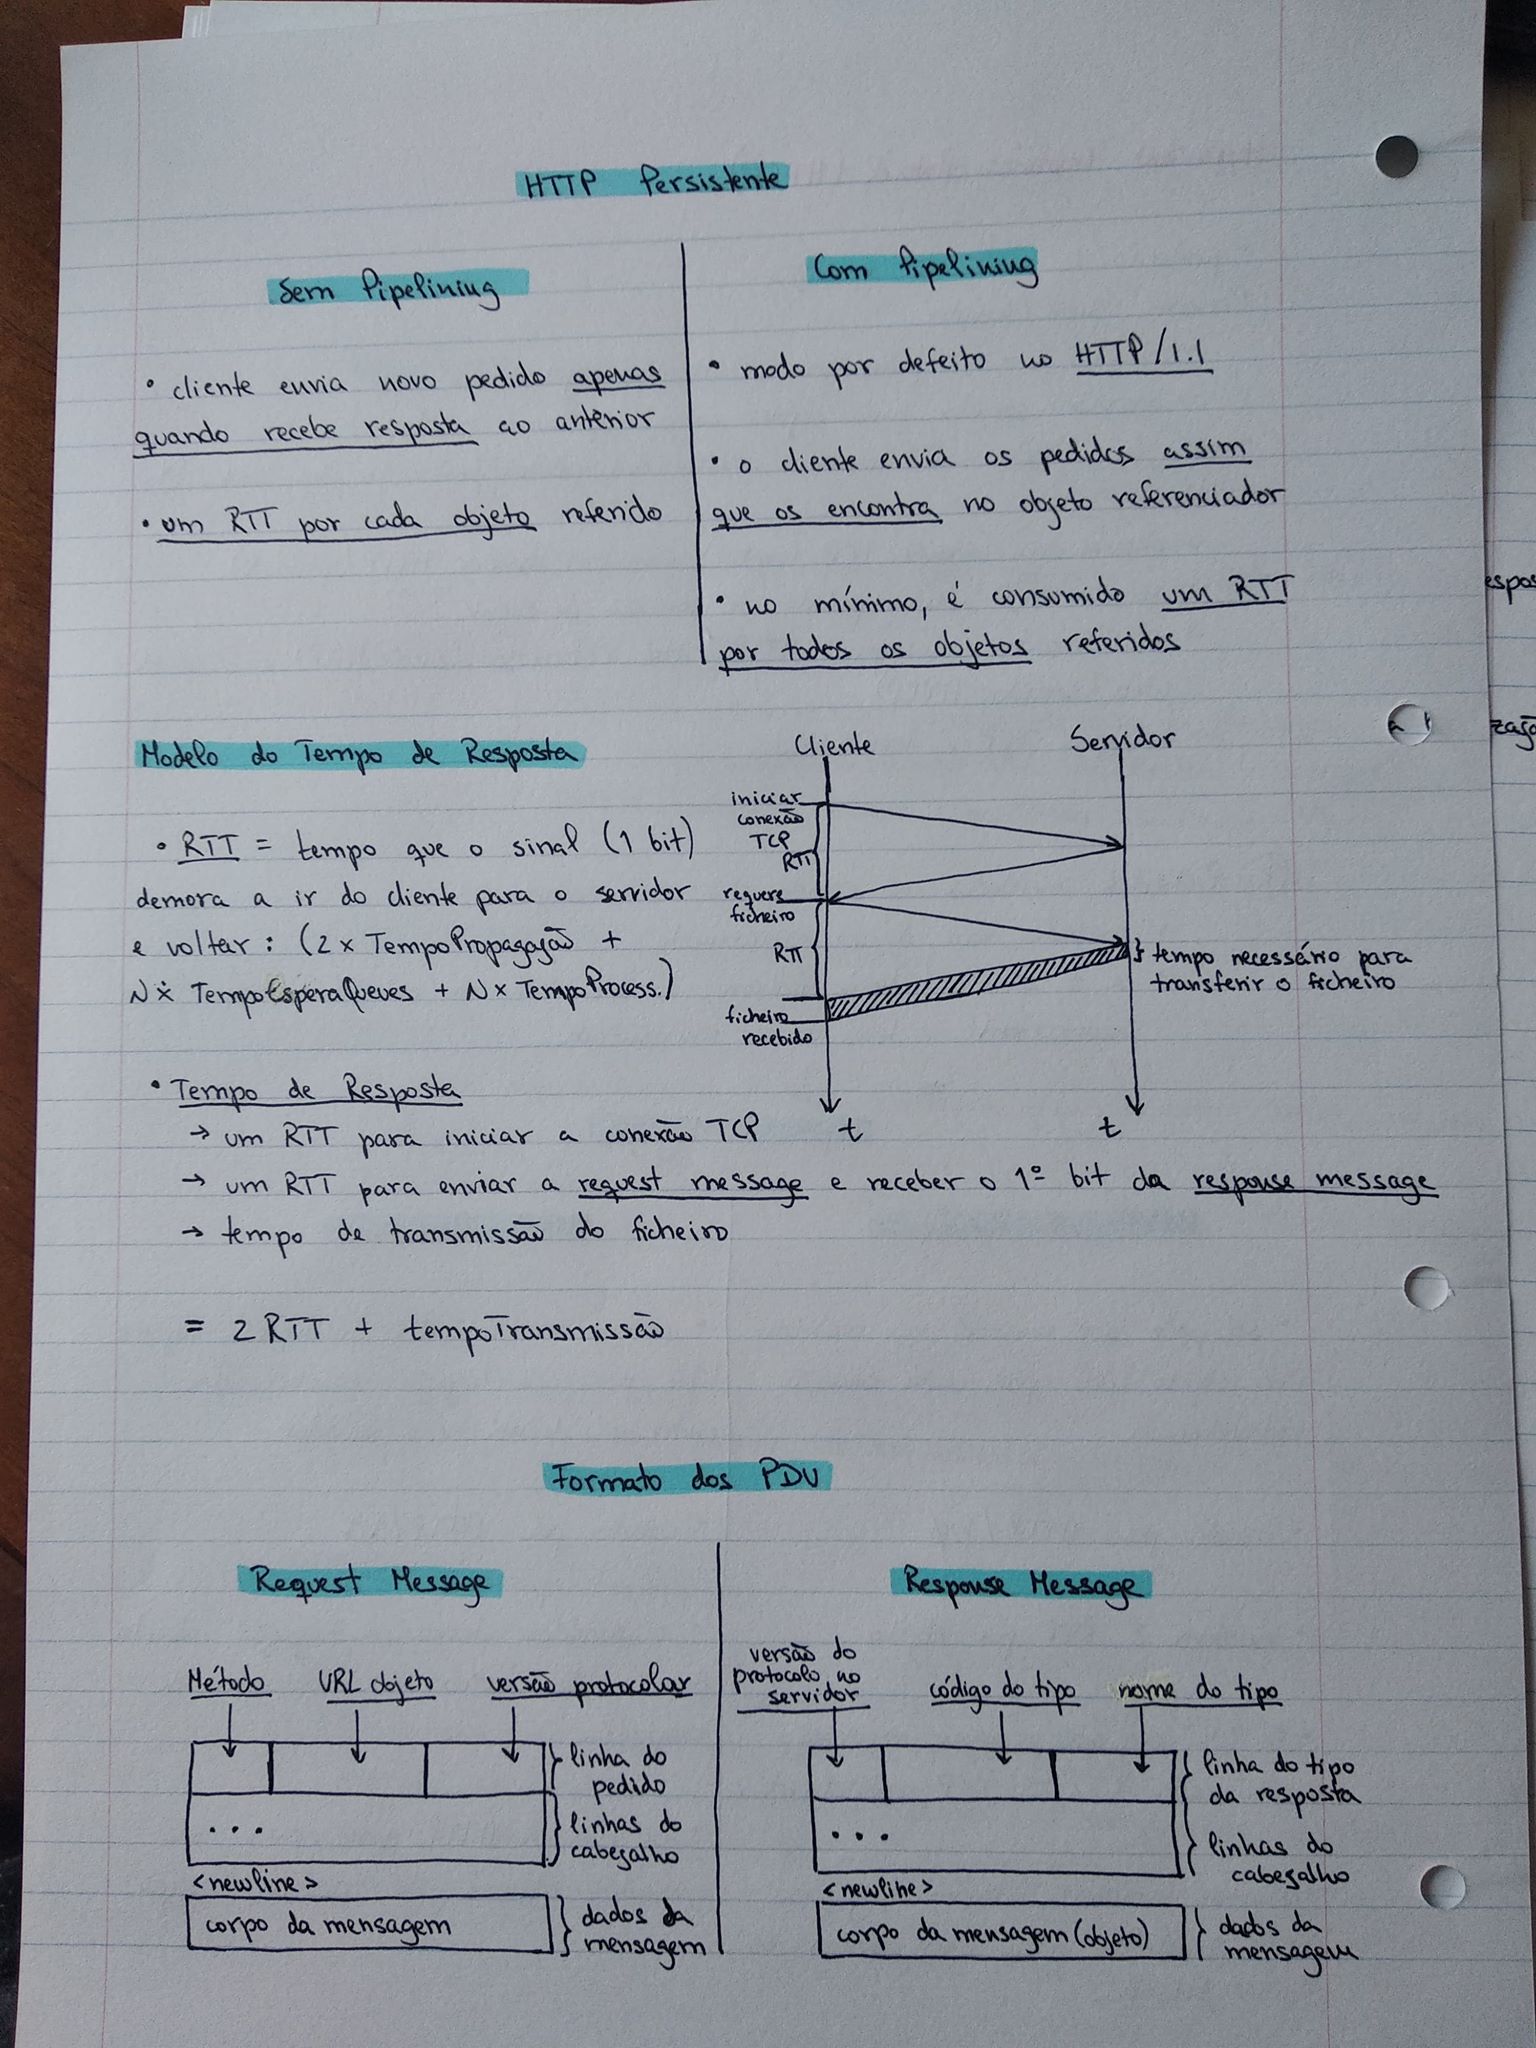 HTTP Persistente
Sem Pipelining
• cliente envia novo pedido apenas
quando recebe resposta ao anterior
• um RTT por cada objeto referido
Com Pipelining
• modo por defeito no HTTP/1.1
• o cliente envia os pedidos assim
que os encontra no objeto referenciador
• no mínimo, é consumido um RTT
por todos os objetos referidos
Modelo do Tempo de Resposta
• RTT = tempo que o sinal (1 bit)
demora a ir do cliente para o servidor
e voltar: (2 x TempoPropagação +
N x TempoEsperaQueues + N x TempoProcess.)
Cliente
Servidor
iniciar
conexão
TCP
RTT
requere
ficheiro
RTT
ficheiro
recebido
tempo necessário para
transferir o ficheiro
t
t
• Tempo de Resposta
→ um RTT para iniciar a conexão TCP
→ um RTT para enviar a request message e receber o 1º bit da response message
→ tempo de transmissão do ficheiro
= 2 RTT + tempoTransmissão
Formato dos PDU
Request Message
Método URL objeto versão protocolar
linha do
pedido
...
linhas do
cabeçalho
<newline>
corpo da mensagem
dados da
mensagem
Response Message
versão do
protocolo no
servidor
código do tipo nome do tipo
linha do tipo
da resposta
...
linhas do
cabeçalho
<newline>
corpo da mensagem (objeto)
dados da
mensagem